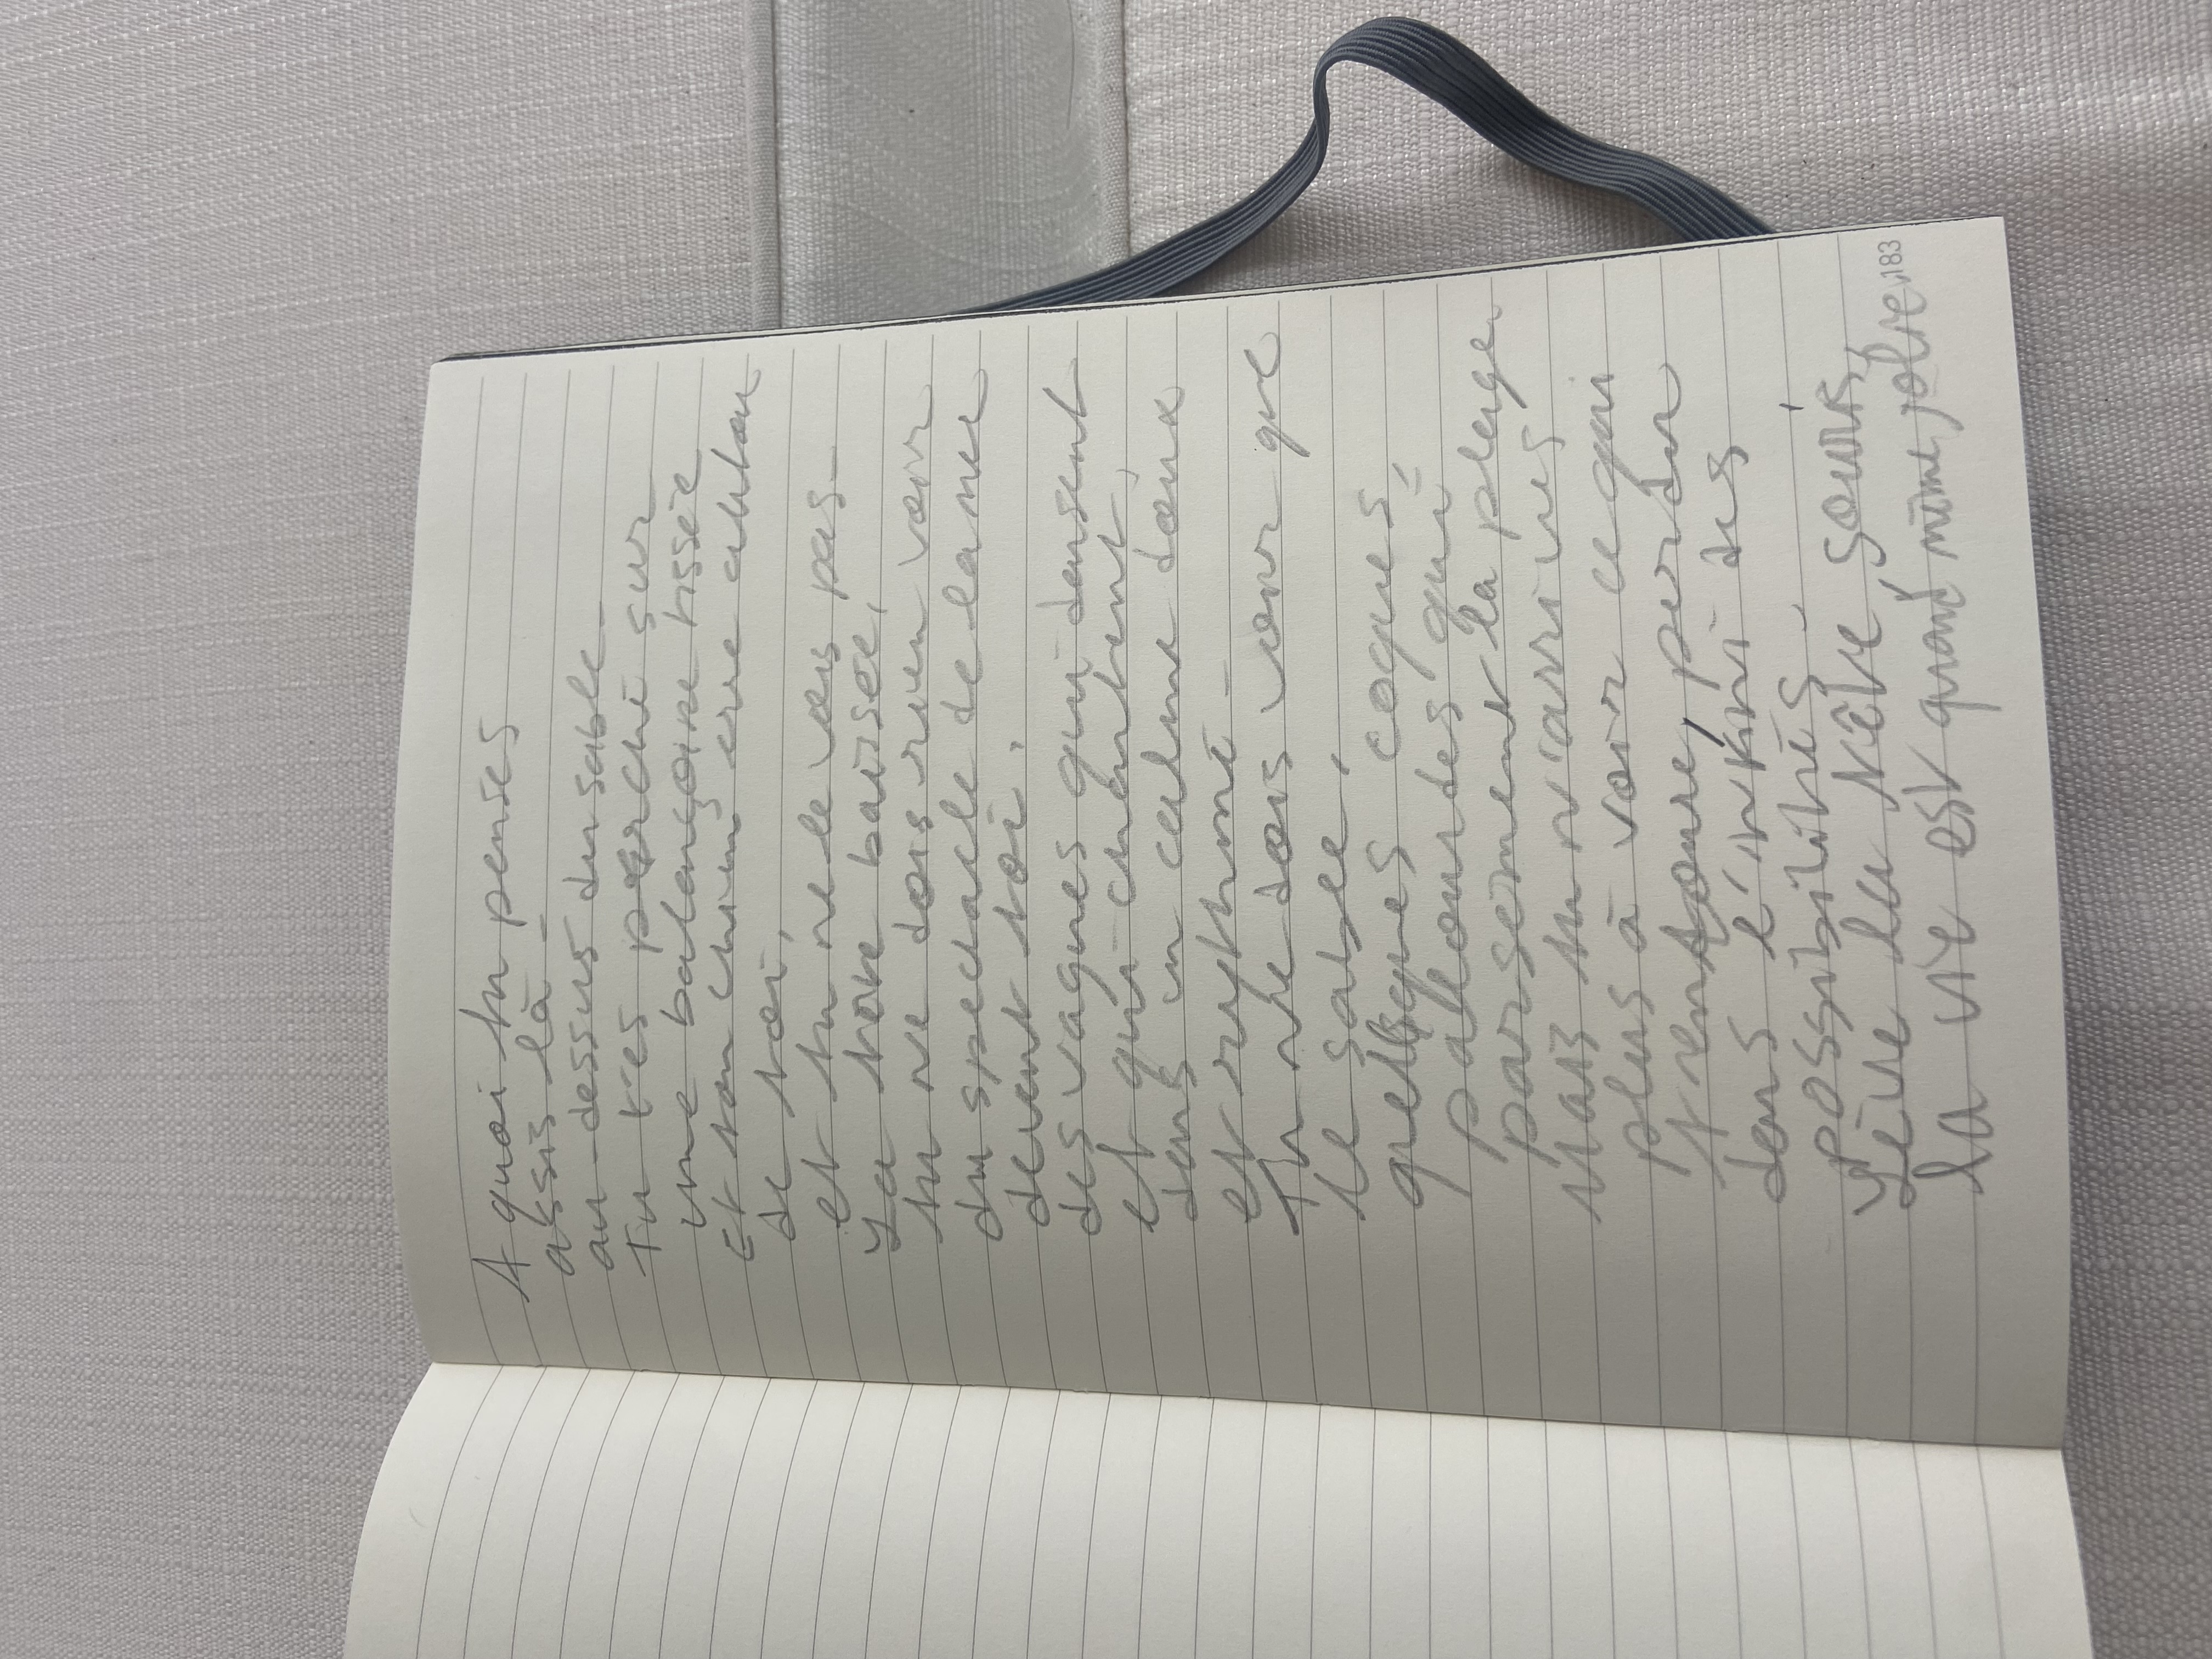 A quoi tu penses
assis là -
au-dessus du sable -
Tu t'es perché sur
une balançoire tissée
Et ton chien erre autour
de toi,
et tu ne le vois pas -
La tête baissée,
tu ne dois rien voir
du spectacle de la mer
devant toi,
des vagues qui dansent
et qui chantent,
dans un calme doux
et rythmé -
Tu ne dois voir que
le sable,
quelques coques,
palourdes qui
parsèment la plage
Mais tu n'arrives
plus à voir ce qui
t'entoure, perdu
dans l'infini des
possibilités,
Lève la tête, souris,
la vie est quand même jolie,
183